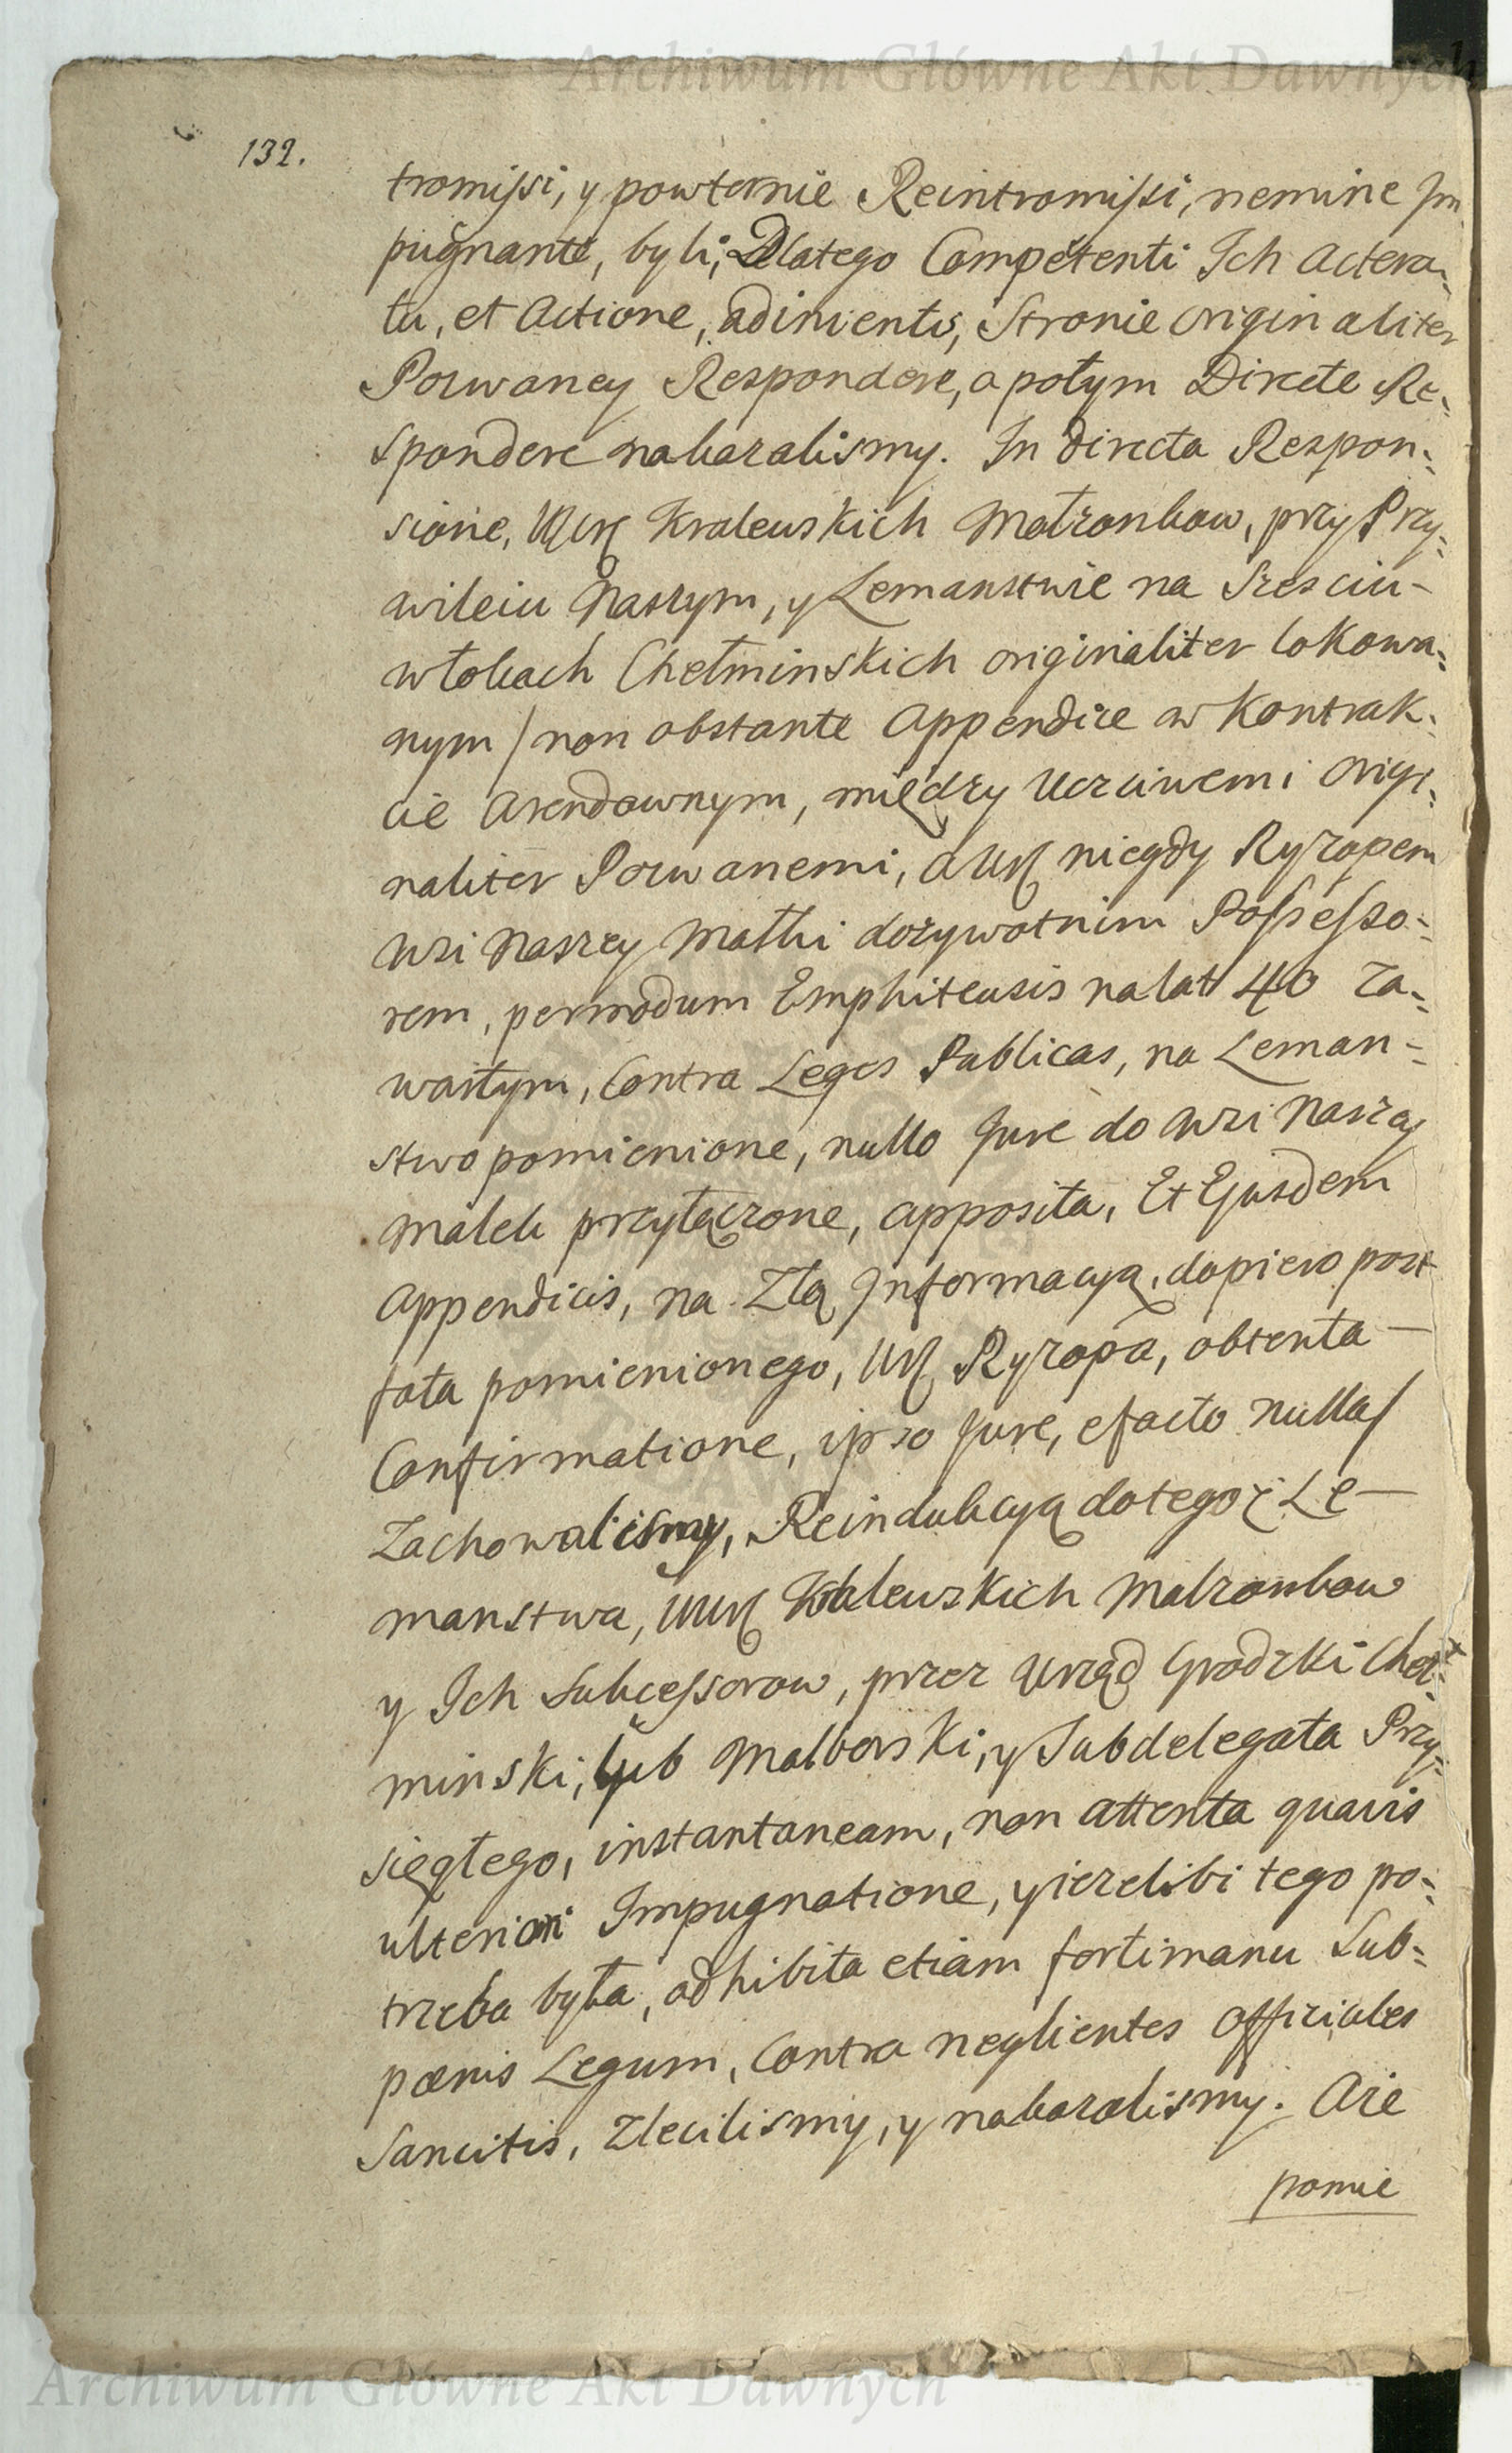 Archiwum Główne Akt Dawnych
132.
tromissi, y powtornie Reintromissi, nemine Im
pugnante, byli; Dlatego Competenti Ich Actora,
tu, et Actione, adinientis, Stronie originaliter
Pozwaney Respondere, a potym Directe Re-
spondere nakazalismy. In directa Respon-
sione, Kralewskich Małzonkow, przy Przy-
wileiu Naszym, y Lemanstwie na Szesciu-
włokach Chełminskich originaliter lokowa-
nym / non obstante Appendice w Kontrak-
cie Arendownym, między Uczciwemi Origi-
naliter Pozwanemi, a Ur niegdy Ryzopem
Wsi Naszey Małki dozywotnim Possesso-
rem, per modum Emphiteusis na lat 40 Za-
wartym, Contra Leges Publicas, na Leman-
stwo pomienione, nullo Jure do Wsi Naszey
Małek przyłączone, apposita, Et Ejusdem
Appendicis, na Złą Informacyą, dopiero post
fata pomienionego, Ur Ryzopa, obtenta
Confirmatione, ipso Jure, efacto nulla /
Zachowalismy, Reindukcyą do tegoż Le-
manstwa, Kralewskich Małzonkow
y Ich Sukcessorow, przez Urząd Grodzki Cheł-
minski, lub Malborski, y Subdelegata Przy-
sięgłego, instantaneam, non attenta quavis
ulteriori Impugnatione, y iezeliby tego po-
trzeba była, adhibita etiam forti manu Sub-
pœnis Legum, Contra neglientes Officiales
Sancitis, Zlecilismy, y nakazalismy. Aże
pomie
Archiwum Główne Akt Dawnych